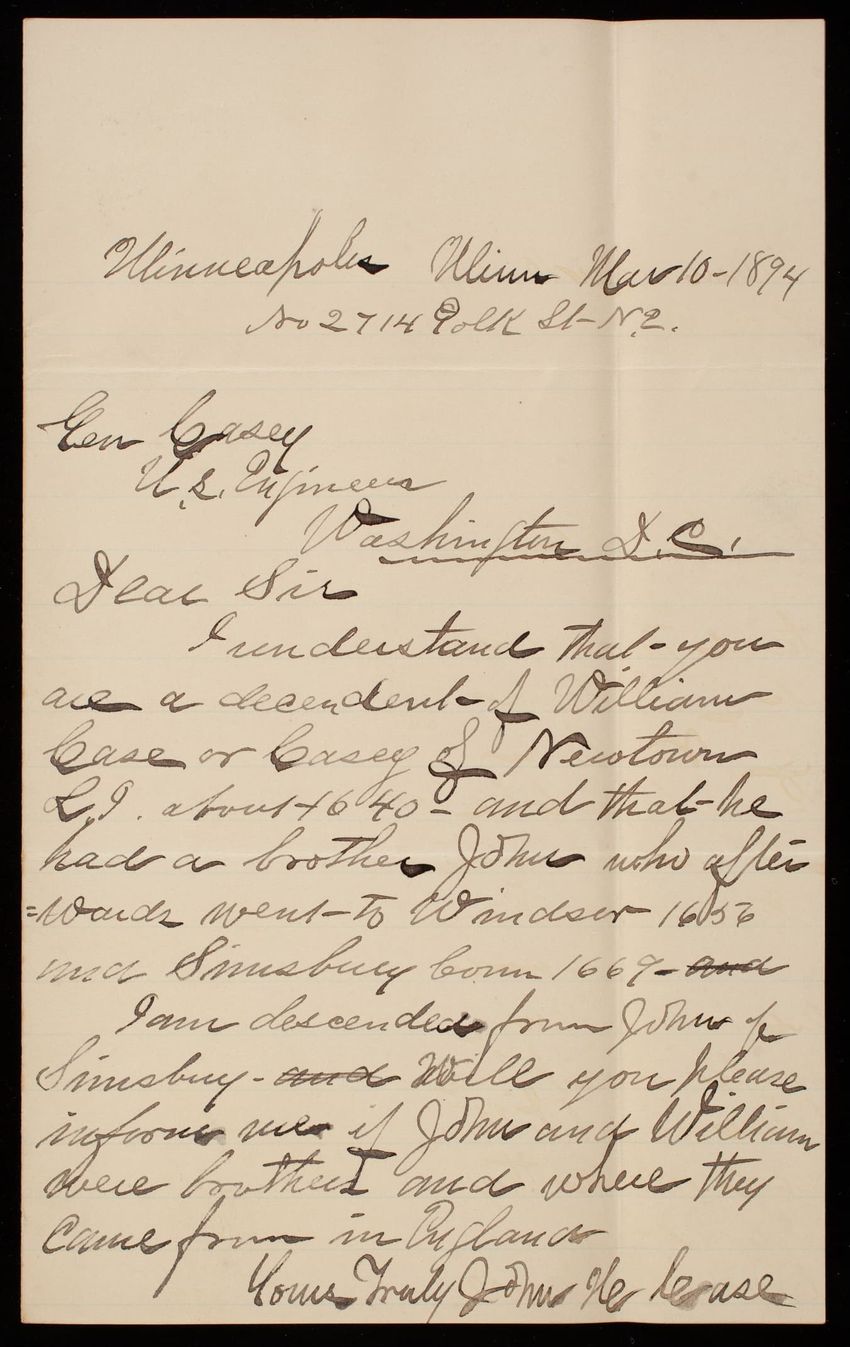 Minneapolis Minn Mar 10-1894
No 2714 Polk St-N.E.
Gen Casey
U.S. Engineer
Washington D.C.
Dear Sir
I understand that-you
are a decendent-of William
Case or Casey of Newtown
L.I. about 1640- and that-he
had a brother John who after
=wards went-to Windsor 1656
and Simsbury Conn 1669- and
I am descended from John of
Simsbury- and Will you please
inform me if John and William
were brothers and where they
came from in England
Yours Truly John H Case